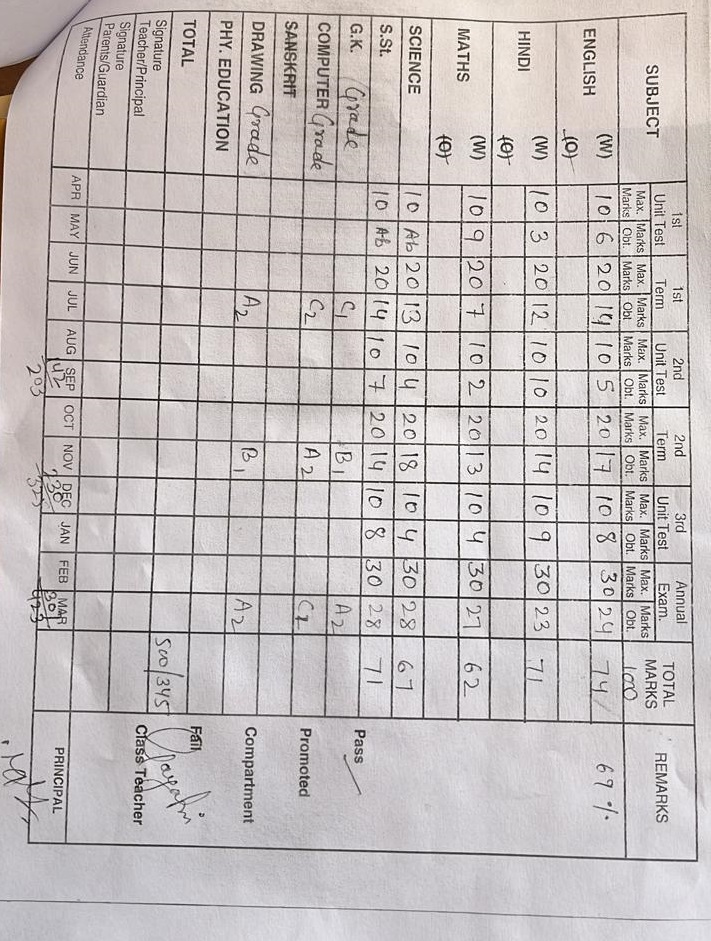 SUBJECT 1st Unit Test 1st Term 2nd Unit Test 2nd Term 3rd Unit Test Annual Exam. TOTAL MARKS REMARKS
Max. Marks Marks Obt. Max. Marks Marks Obt. Max. Marks Marks Obt. Max. Marks Marks Obt. Max. Marks Marks Obt. Max. Marks Marks Obt. 100
ENGLISH (W) 10 6 20 14 10 5 20 17 10 8 30 24 74 69 %
(O)
HINDI (W) 10 3 20 12 10 10 20 14 10 9 30 23 71
(O)
MATHS (W) 10 9 20 7 10 2 20 13 10 4 30 27 62
(O)
SCIENCE 10 Ab 20 13 10 4 20 18 10 4 30 28 67
S.St. 10 Ab 20 14 10 7 20 14 10 8 30 28 71
G.K. Grade C1 B1 A2 Pass
COMPUTER Grade C2 A2 Promoted
SANSKRIT
DRAWING Grade A2 B1 A2 Compartment
PHY. EDUCATION
TOTAL 500/345 Fail
Signature Teacher/Principal Class Teacher
Signature Parents/Guardian
Attendance APR MAY JUN JUL AUG SEP OCT NOV DEC JAN FEB MAR PRINCIPAL
293